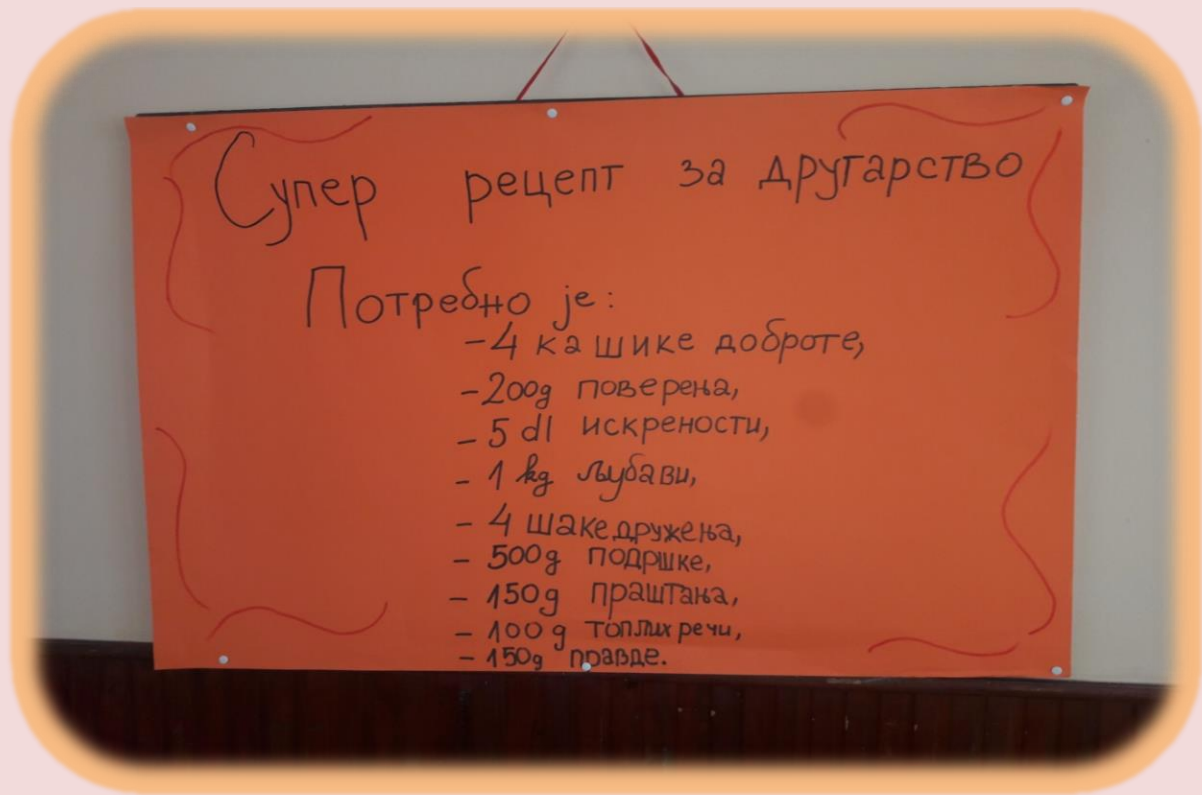 Супер рецепт за другарство
Потребно је:
- 4 кашике доброте,
- 200g поверења,
- 5 dl искрености,
- 1 kg љубави,
- 4 шаке дружења,
- 500g подршке,
- 150g праштања,
- 100g топлих речи,
- 150g правде.